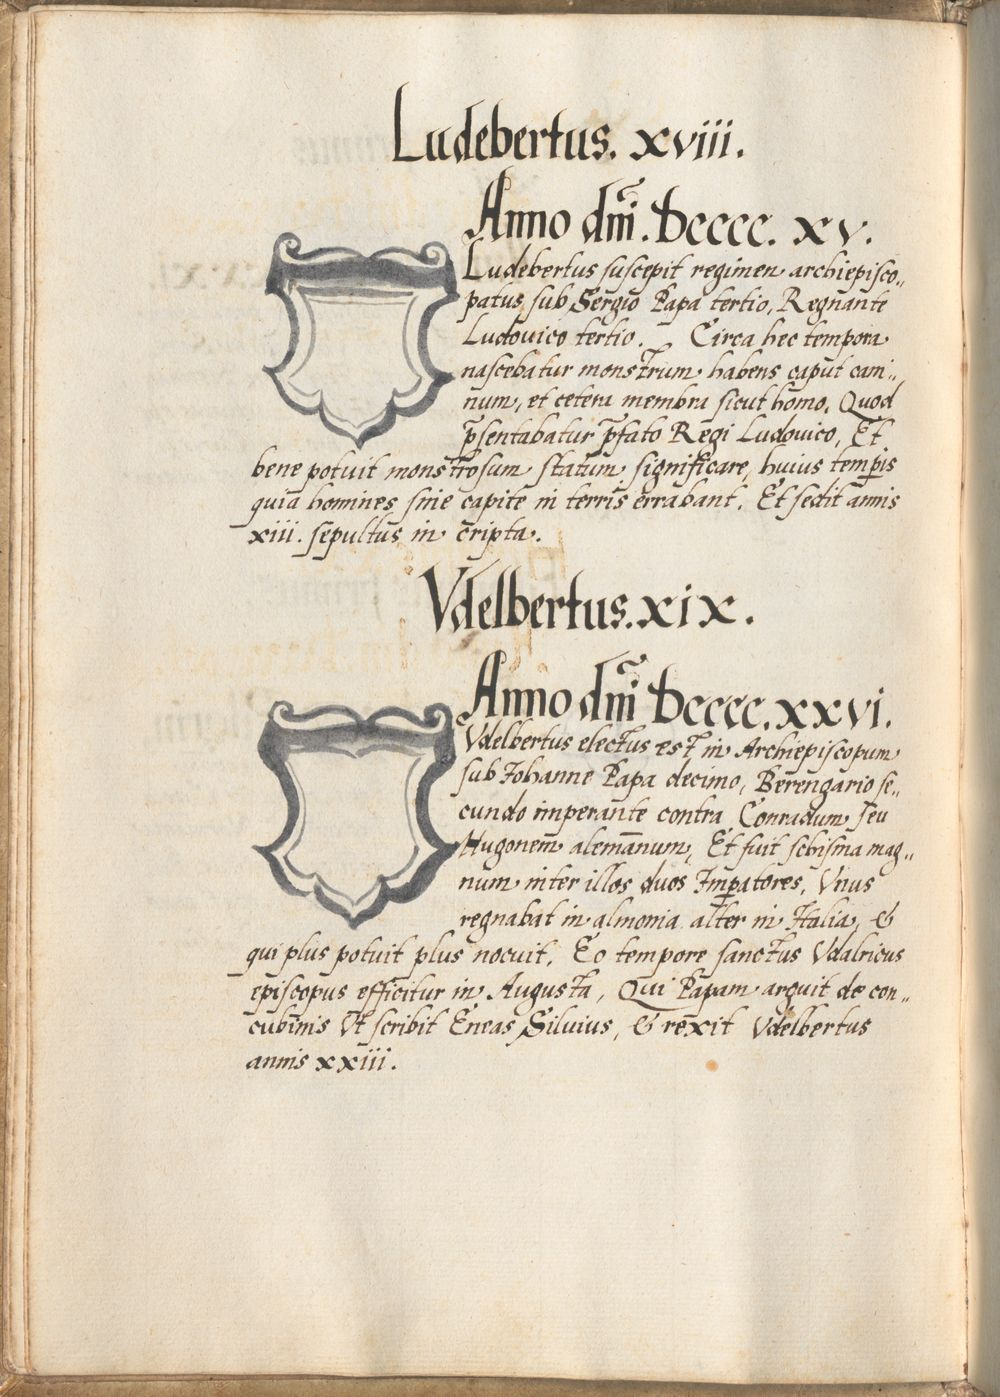 Ludebertus. xviii.
Anno dm̃. Dcccc. xv.
Ludebertus suscepit regimen archiepisco„
patus, sub Sergio Papa tertio, Regnante
Ludouico tertio. Circa hec tempora
nascebatur monstrum habens caput cani„
num, et cetera membra sicut homo. Quod
p̃sentabatur p̃fato Regi Ludouico, Et
bene potuit monstrosum statum significare, huius temp̃is
quia homines sine capite in terris errabant. Et sedit annis
xiii. sepultus in cripta.
Vdelbertus. xix.
Anno dm̃ Dcccc. xxvi.
Vdelbertus electus est in Archiepiscopum
sub Johanne Papa decimo, Berengario se„
cundo imperante contra Conradum seu
Hugonem alemannum, Et fuit schisma mag„
num inter illos duos Imp̃atores, Vnus
regnabat in almonia alter in Italia, &
qui plus potuit plus nocuit. Eo tempore sanctus Vdalricus
episcopus efficitur in Augusta, Qui Papam arguit de con„
cubinis Vt scribit Eneas Siluius, & rexit Vdelbertus
annis xxiii.